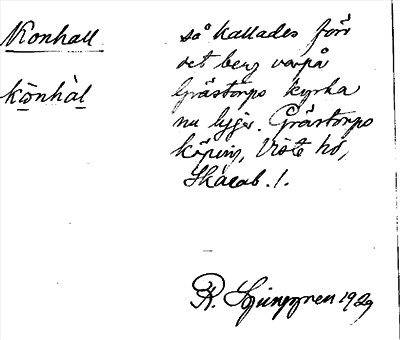 Konhall
så kallades förr
det berg varpå
kònhàl
Grästorps kyrka
nu ligger. Grästorps
köping, Viste hd,
Skarab. l.
R. Ljunggren 1929